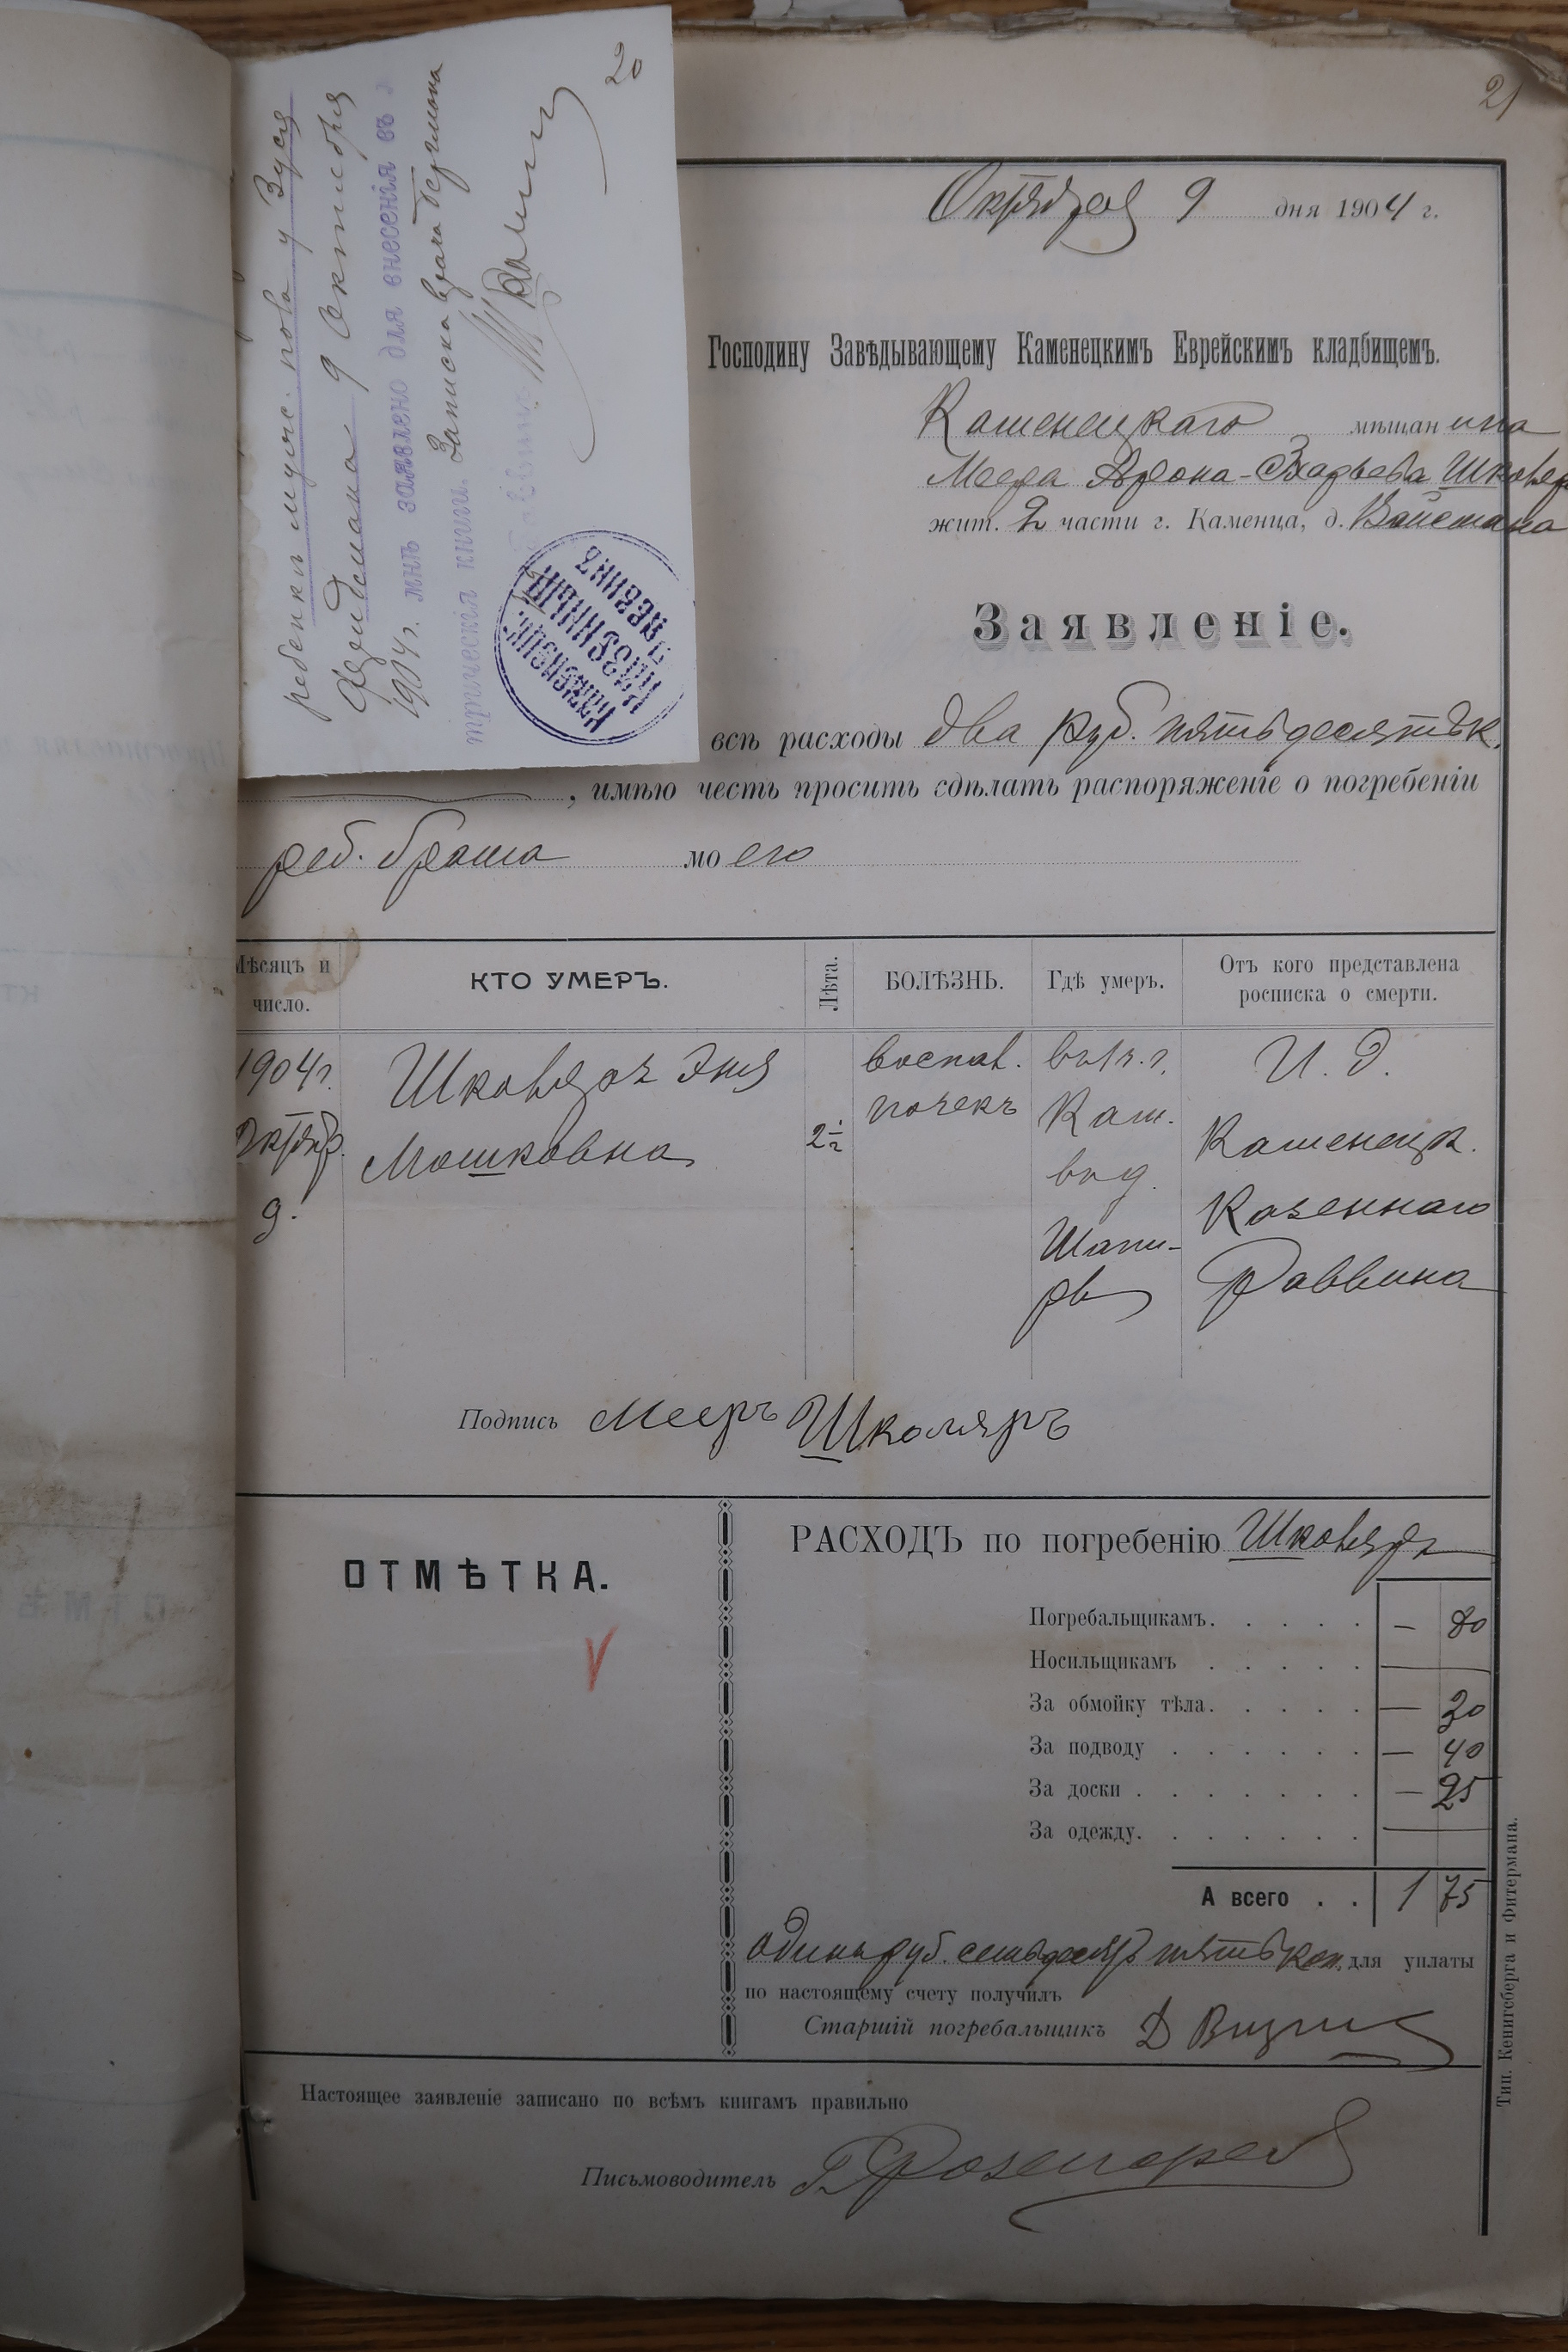 21
Октября 9 дня 1904 г.
Господину Завѣдывающему Каменецкимъ Еврейскимъ кладбищемъ.
Каменецкаго мѣщанина
Меера Арона-
жит. 2 части г. Каменца, д. Вайсмана
Заявленіе.
всѣ расходы два руб. пятьдесятъ к.
, имѣю честь просить сдѣлать распоряженіе о погребеніи
реб. брата моего
Мѣсяцъ и число.
КТО УМЕРЪ.
Лѣта.
БОЛѢЗНЬ.
Гдѣ умеръ.
Отъ кого представлена росписка о смерти.
1904 г.
Октябр.
9.
Школяръ Эня
Мошковна
2½
воспал.
почекъ
въ 1 ч. г.
Кам.
Шапи-
И. Д.
Каменецк.
Казеннаго
Раввина
Подпись Мееръ Школяръ
ОТМѢТКА.
РАСХОДЪ по погребенію Школяръ
Погребальщикамъ. — 80
Носильщикамъ —
За обмойку тѣла. — 30
За подводу — 40
За доски — 25
За одежду. —
А всего 1 75
одинъ руб. семьдесятъ пять коп. для уплаты
по настоящему счету получилъ
Старшій погребальщикъ Д
Настоящее заявленіе записано по всѣмъ книгамъ правильно
Письмоводитель
Тип. Кенигсберга и Фитермана.
20
ребенка мужс. пола у Зуся
9 Октября
1904 г. мнѣ заявлено для внесенія въ
трическія книги. Записка врача
КАМЕНЕЦК.
КАЗЕННЫЙ
РАВВИНЪ